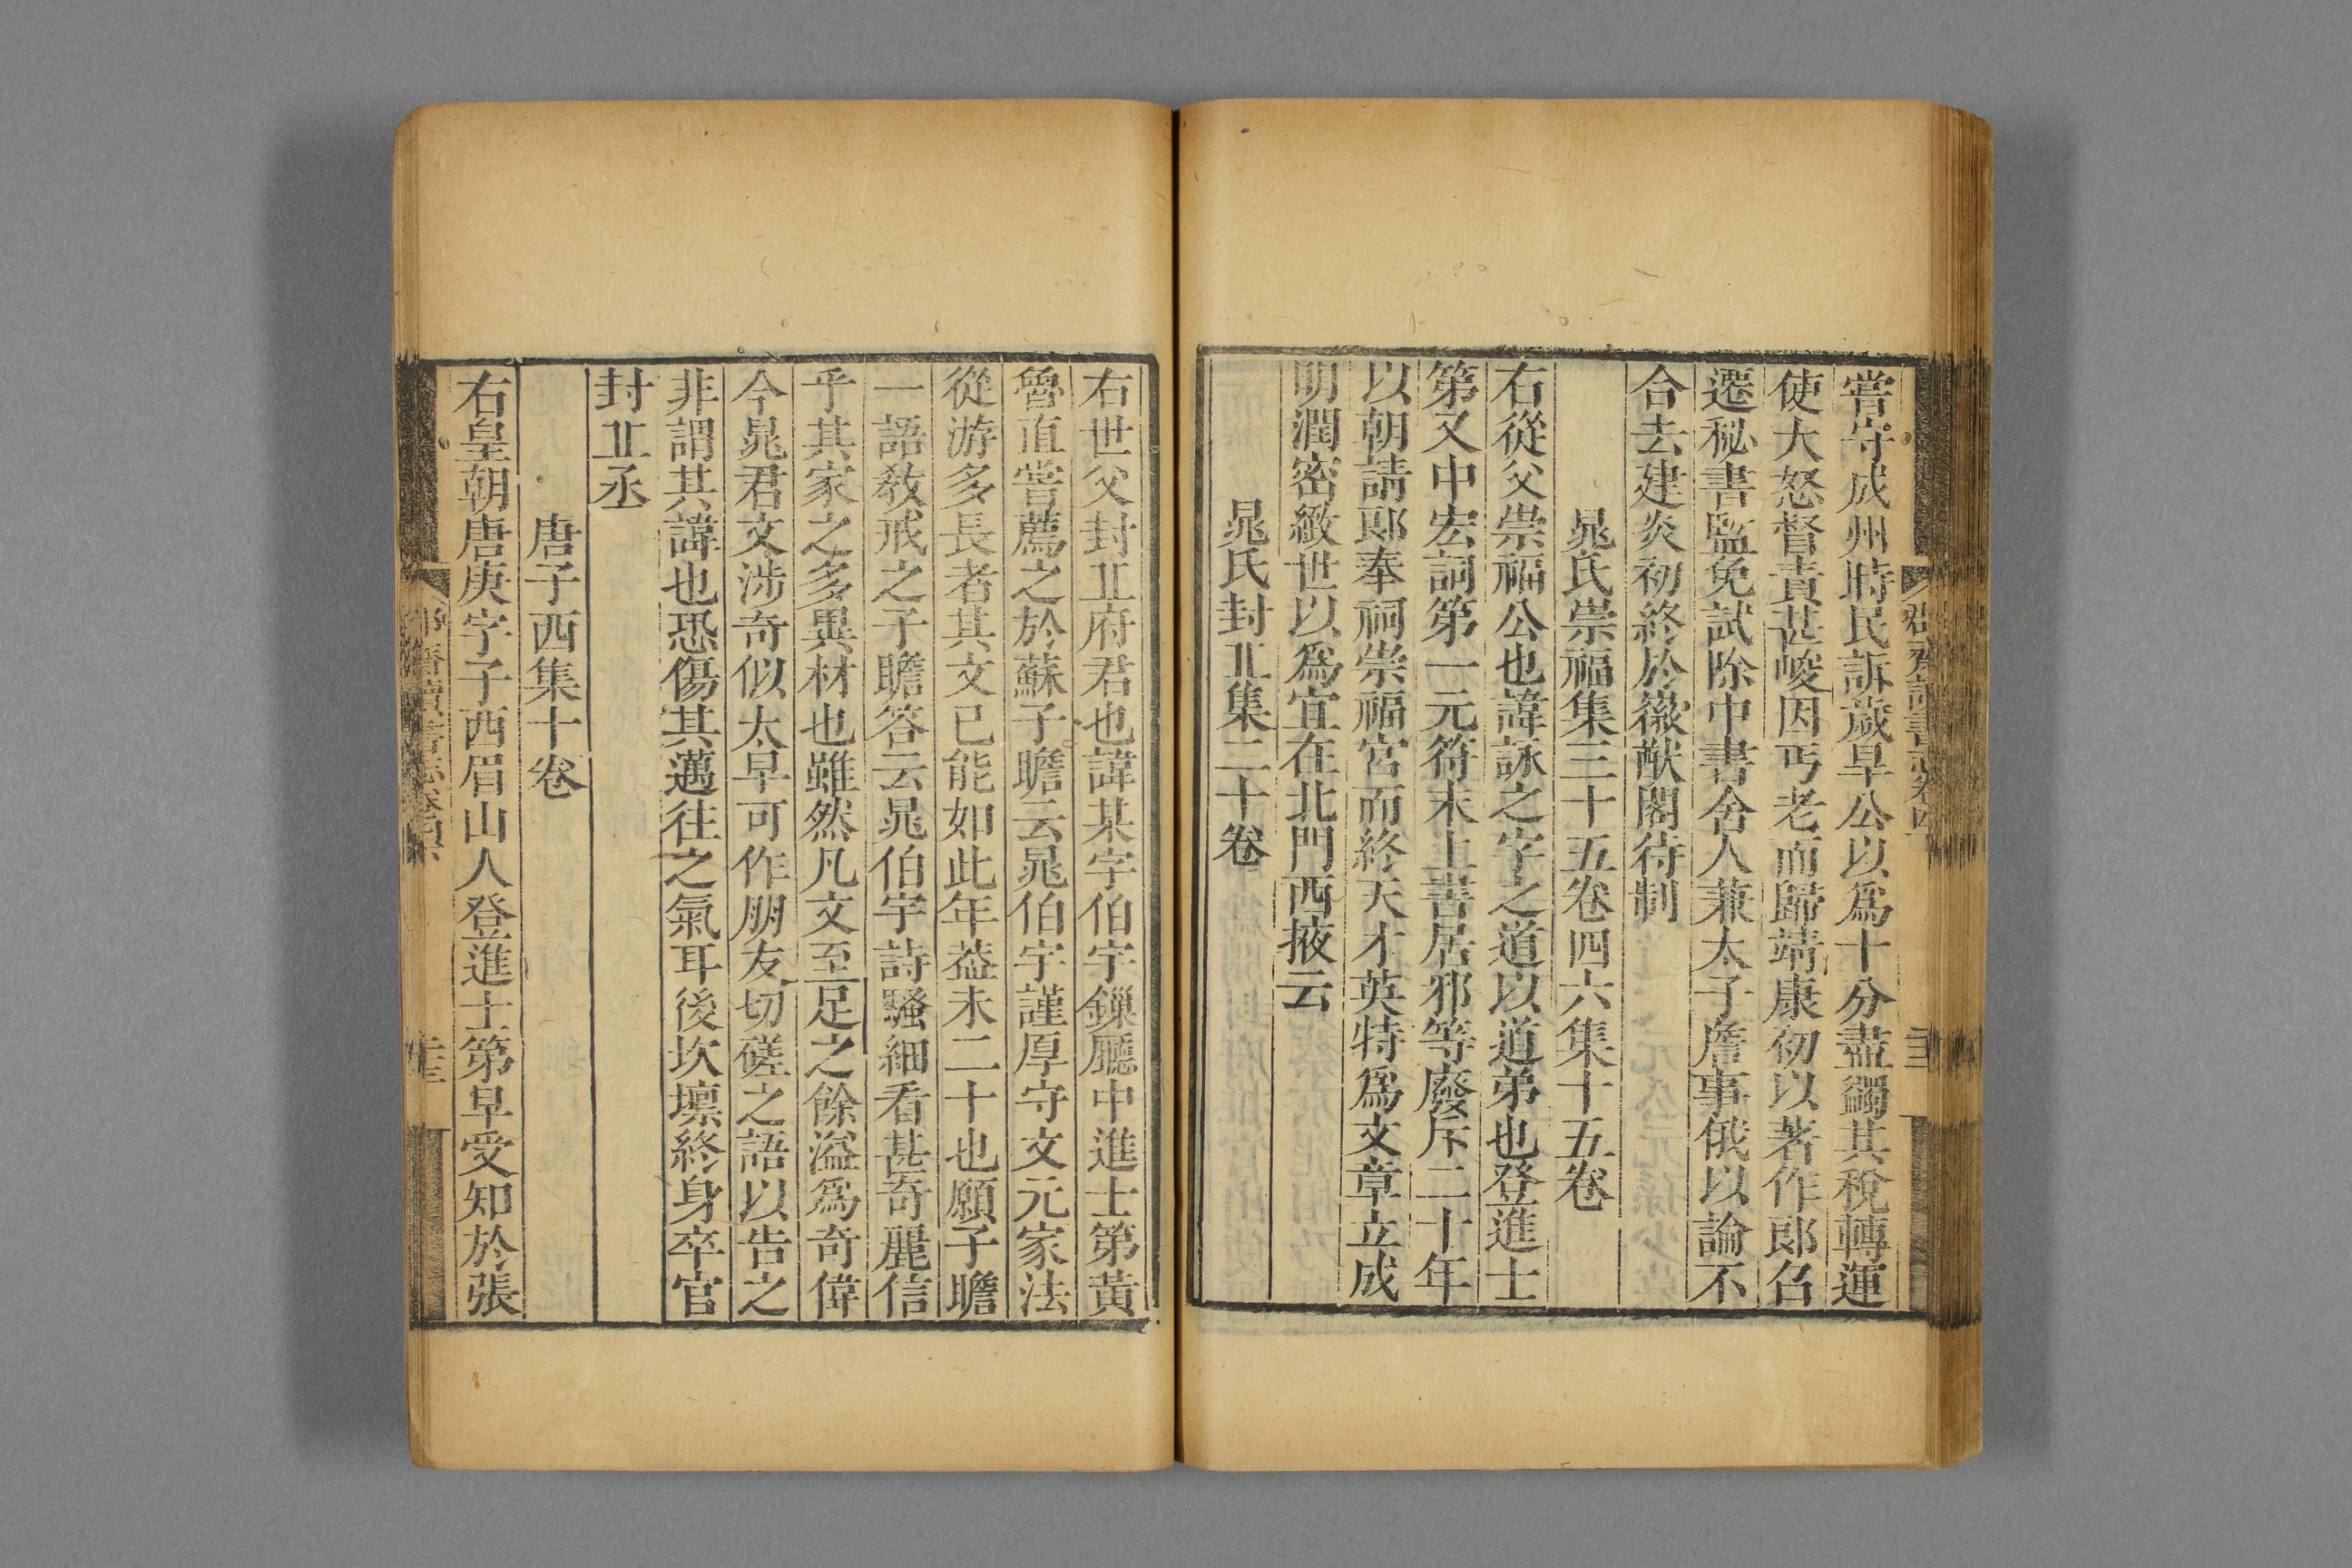 嘗守成州時民訴歲旱公以爲十分盡蠲其稅轉運
使大怒督責甚峻因丐老而歸靖康初以著作郎召
遷秘書監免試除中書舍人兼太子詹事俄以論不
合去建炎初終於徽猷閣待制
晁氏崇福集三十五卷四六集十五卷
右從父崇福公也諱詠之字之道以道弟也登進士
第又中宏詞第一元符末上書居邪等廢斥二十年
以朝請郎奉祠崇福宮而終天才英特爲文章立成
明潤密緻世以爲宜在北門西掖云
晁氏封丘集二十卷
右世父封丘府君也諱某字伯宇鏁廳中進士第黃
魯直嘗薦之於蘇子瞻云晁伯宇謹厚守文元家法
從游多長者其文已能如此年葢未二十也願子瞻
一語教戒之子瞻答云晁伯宇詩騷細看甚奇麗信
乎其家之多異材也雖然凡文至足之餘溢爲奇偉
今晁君文涉奇似太早可作朋友切磋之語以告之
非謂其諱也恐傷其邁往之氣耳後坎壈終身卒官
封丘丞
唐子西集十卷
右皇朝唐庚字子西眉山人登進士第早受知於張